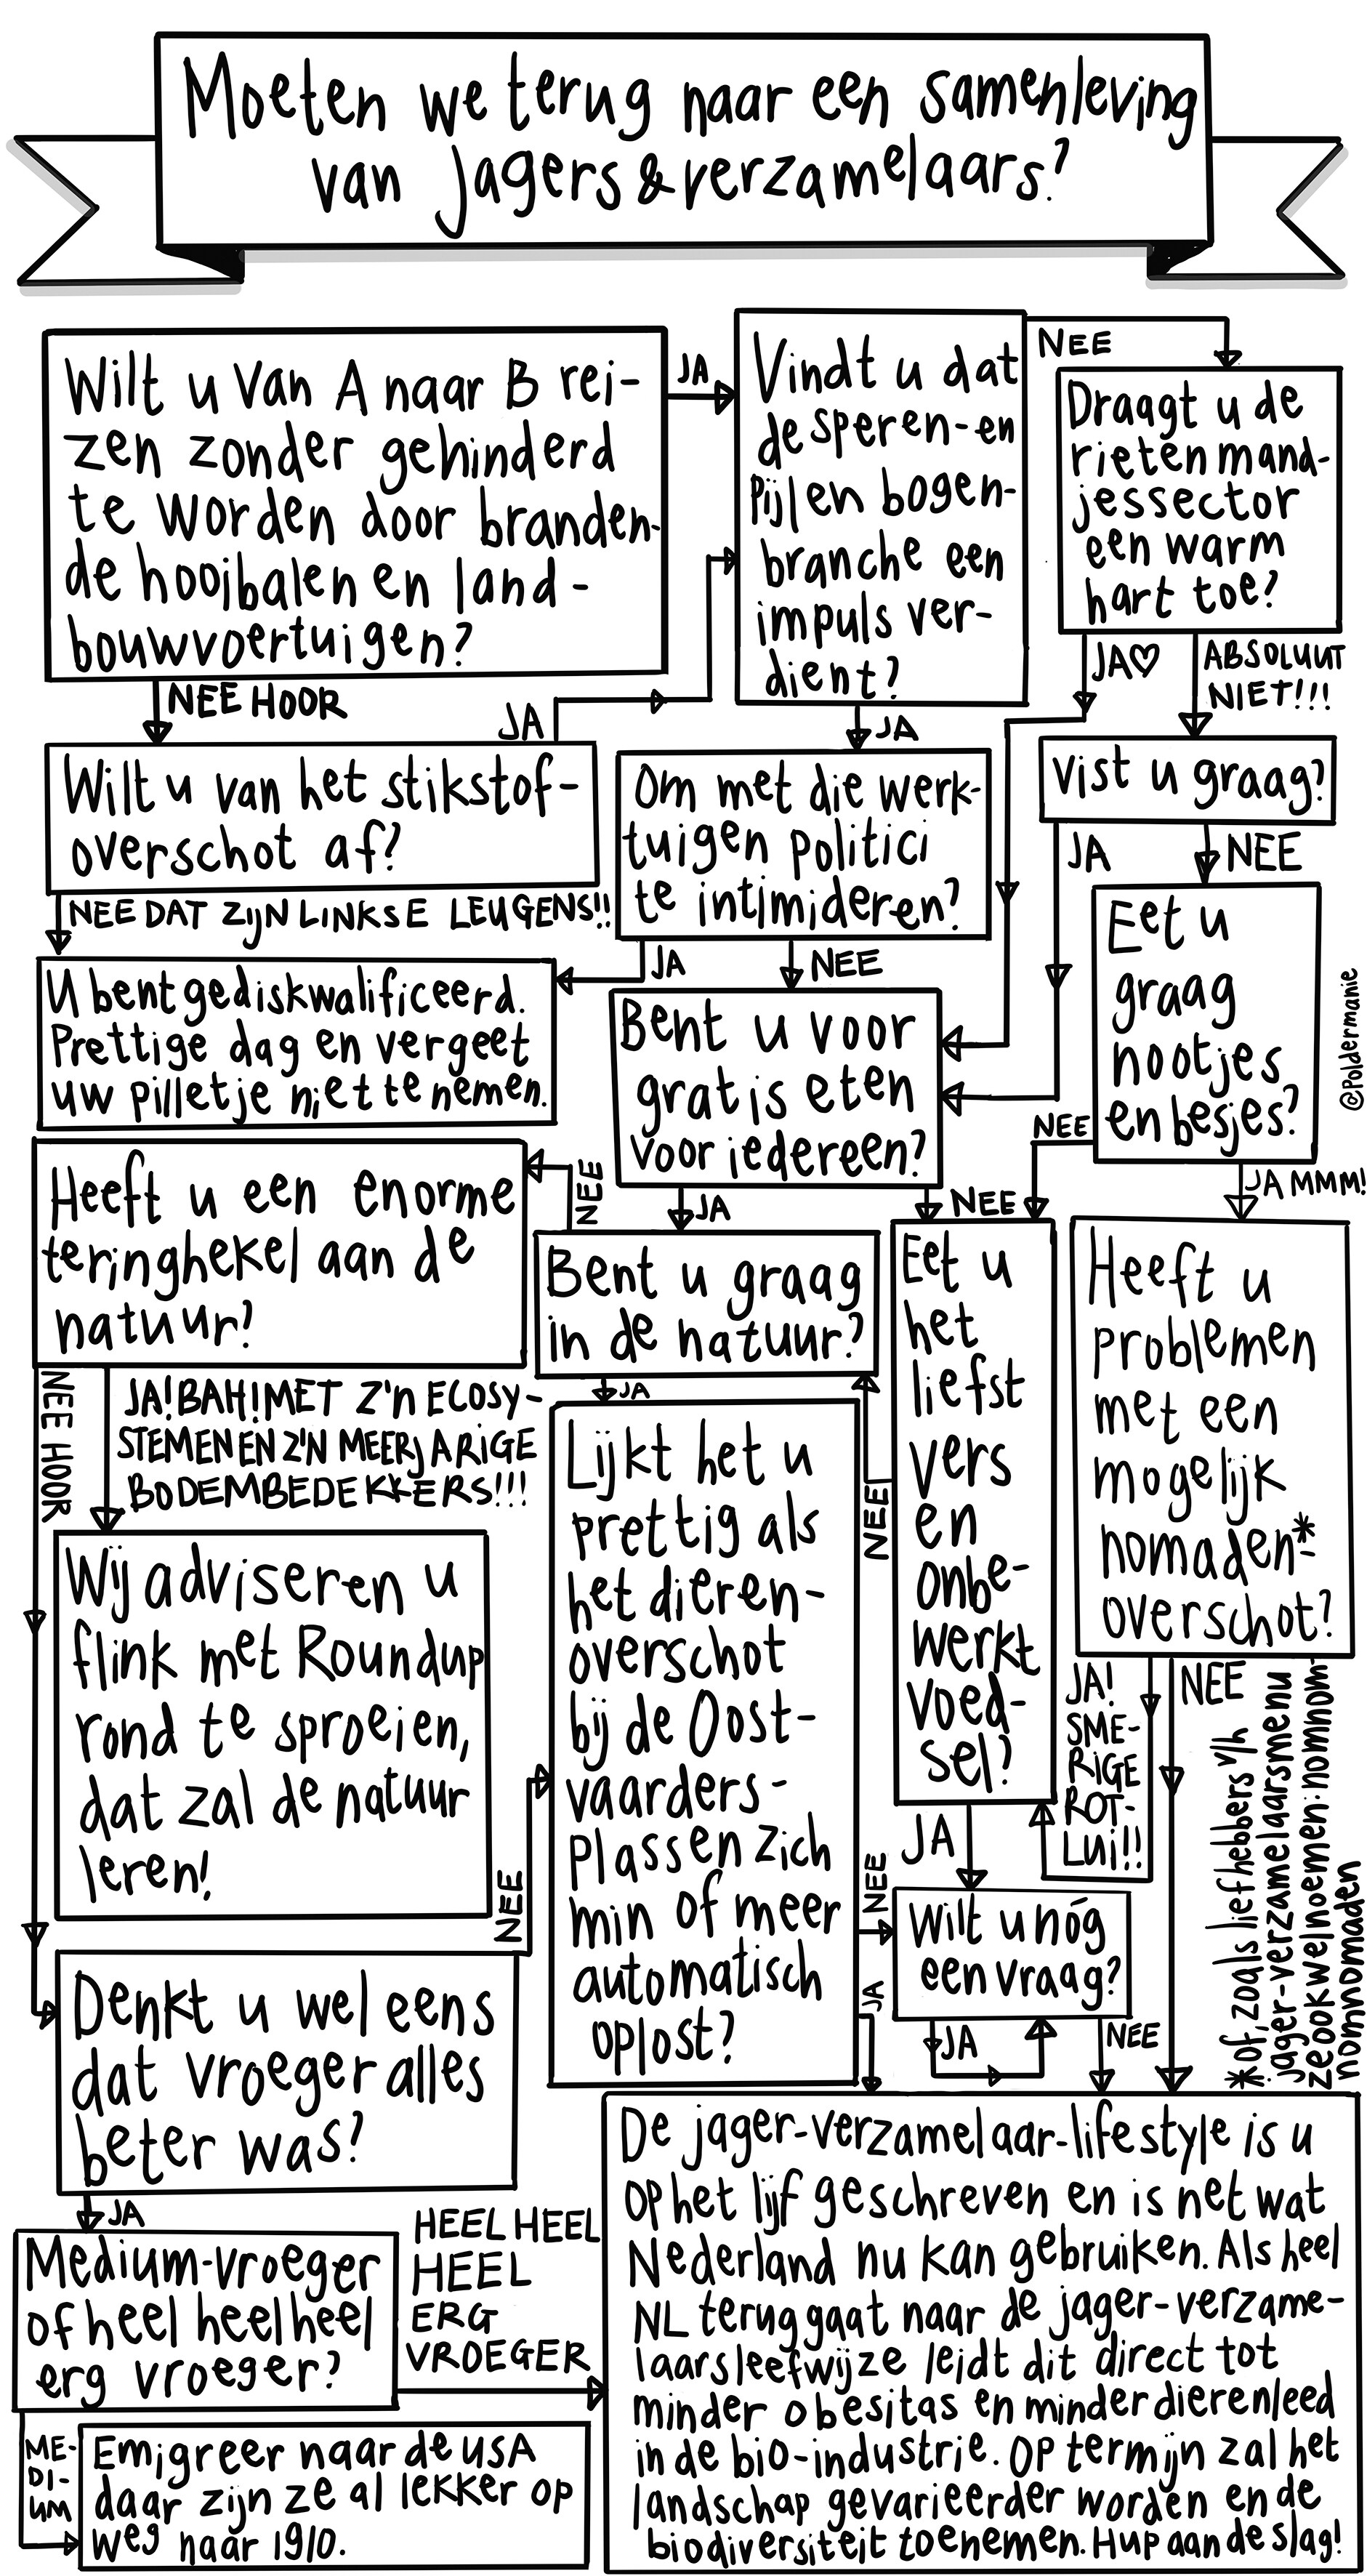 Moeten we terug naar een samenleving
van jagers & verzamelaars?
Wilt u van A naar B rei-
zen zonder gehinderd
te worden door branden-
de hooibalen en land-
bouwvoertuigen?
JA
NEE HOOR
Vindt u dat
de speren- en
pijl en bogen-
branche een
impuls ver-
dient?
NEE
JA
Draagt u de
rieten mand-
jessector
een warm
hart toe?
JA♡
ABSOLUUT
NIET!!!
Wilt u van het stikstof-
overschot af?
JA
NEE DAT ZIJN LINKSE LEUGENS!!
Om met die werk-
tuigen politici
te intimideren?
JA
NEE
Vist u graag?
JA
NEE
Eet u
graag
nootjes
en besjes?
NEE
JA MMM!
@Poldermanie
U bent gediskwalificeerd.
Prettige dag en vergeet
uw pilletje niet te nemen.
Bent u voor
gratis eten
voor iedereen?
JA
NEE
Heeft u een enorme
teringhekel aan de
natuur?
NEE HOOR
JA! BAH! MET Z'N ECOSY-
STEMEN EN Z'N MEERJARIGE
BODEMBEDEKKERS!!!
Bent u graag
in de natuur?
NEE
JA
Eet u
het
liefst
vers
en
onbe-
werkt
voed-
sel?
NEE
JA
Heeft u
problemen
met een
mogelijk
nomaden*-
overschot?
JA!
SME-
RIGE
ROT-
LUI!!
NEE
*of, zoals liefhebbers v/h
jager-verzamelaarsmenu
ze ook wel noemen: nomnom
nomnomaden
Wij adviseren u
flink met Roundup
rond te sproeien,
dat zal de natuur
leren!
Lijkt het u
prettig als
het dieren-
overschot
bij de Oost-
vaarders-
plassen zich
min of meer
automatisch
oplost?
NEE
JA
Wilt u nóg
een vraag?
JA
NEE
Denkt u wel eens
dat vroeger alles
beter was?
NEE
JA
Medium-vroeger
of heel heel heel
erg vroeger?
HEEL HEEL
HEEL
ERG
VROEGER
ME-
DI-
UM
Emigreer naar de USA
daar zijn ze al lekker op
weg naar 1910.
De jager-verzamelaar-lifestyle is u
op het lijf geschreven en is net wat
Nederland nu kan gebruiken. Als heel
NL terug gaat naar de jager-verzame-
laarsleefwijze leidt dit direct tot
minder obesitas en minder dierenleed
in de bio-industrie. Op termijn zal het
landschap gevarieerder worden en de
biodiversiteit toenemen. Hup aan de slag!